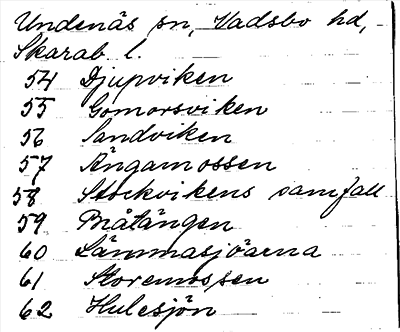 Undenäs sn, Vadsbo hd,
Skarab. l.
54 Djupviken
55 Gomorsviken
56 Sandviken
57 Ängamossen
58 Stockvikens samfall
59 Bråtängen
60 Lämmasjöarna
61 Storemossen
62 Hulesjön